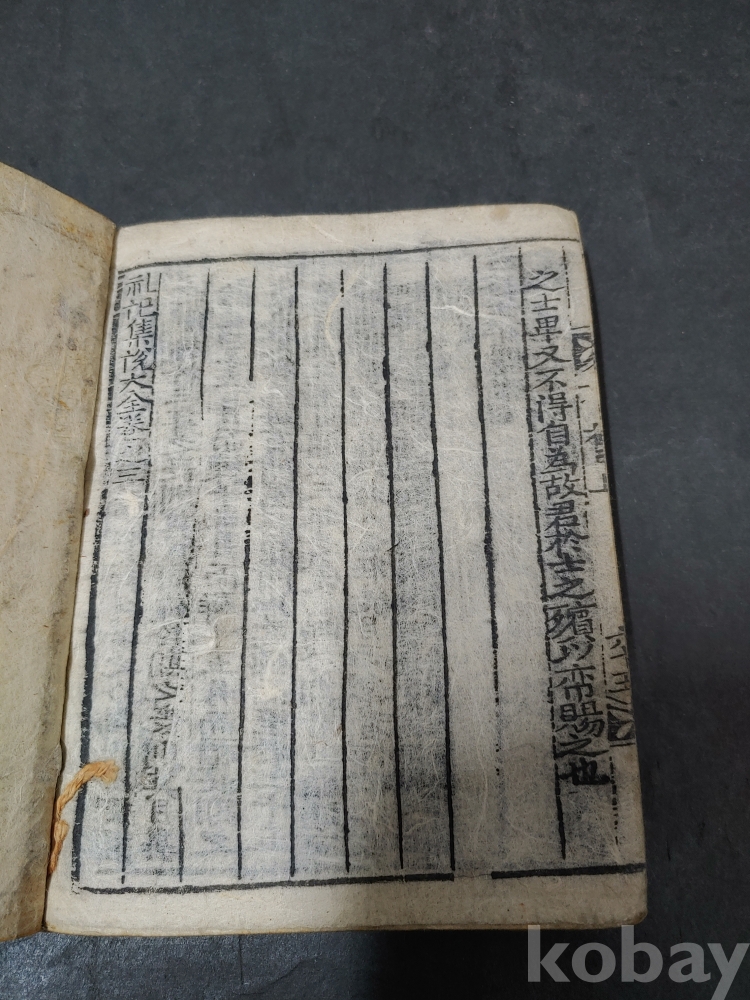 之士卑又不得自為故君於士之殯以帟賜之也
礼記集說大全卷之三
檀弓上
kobay